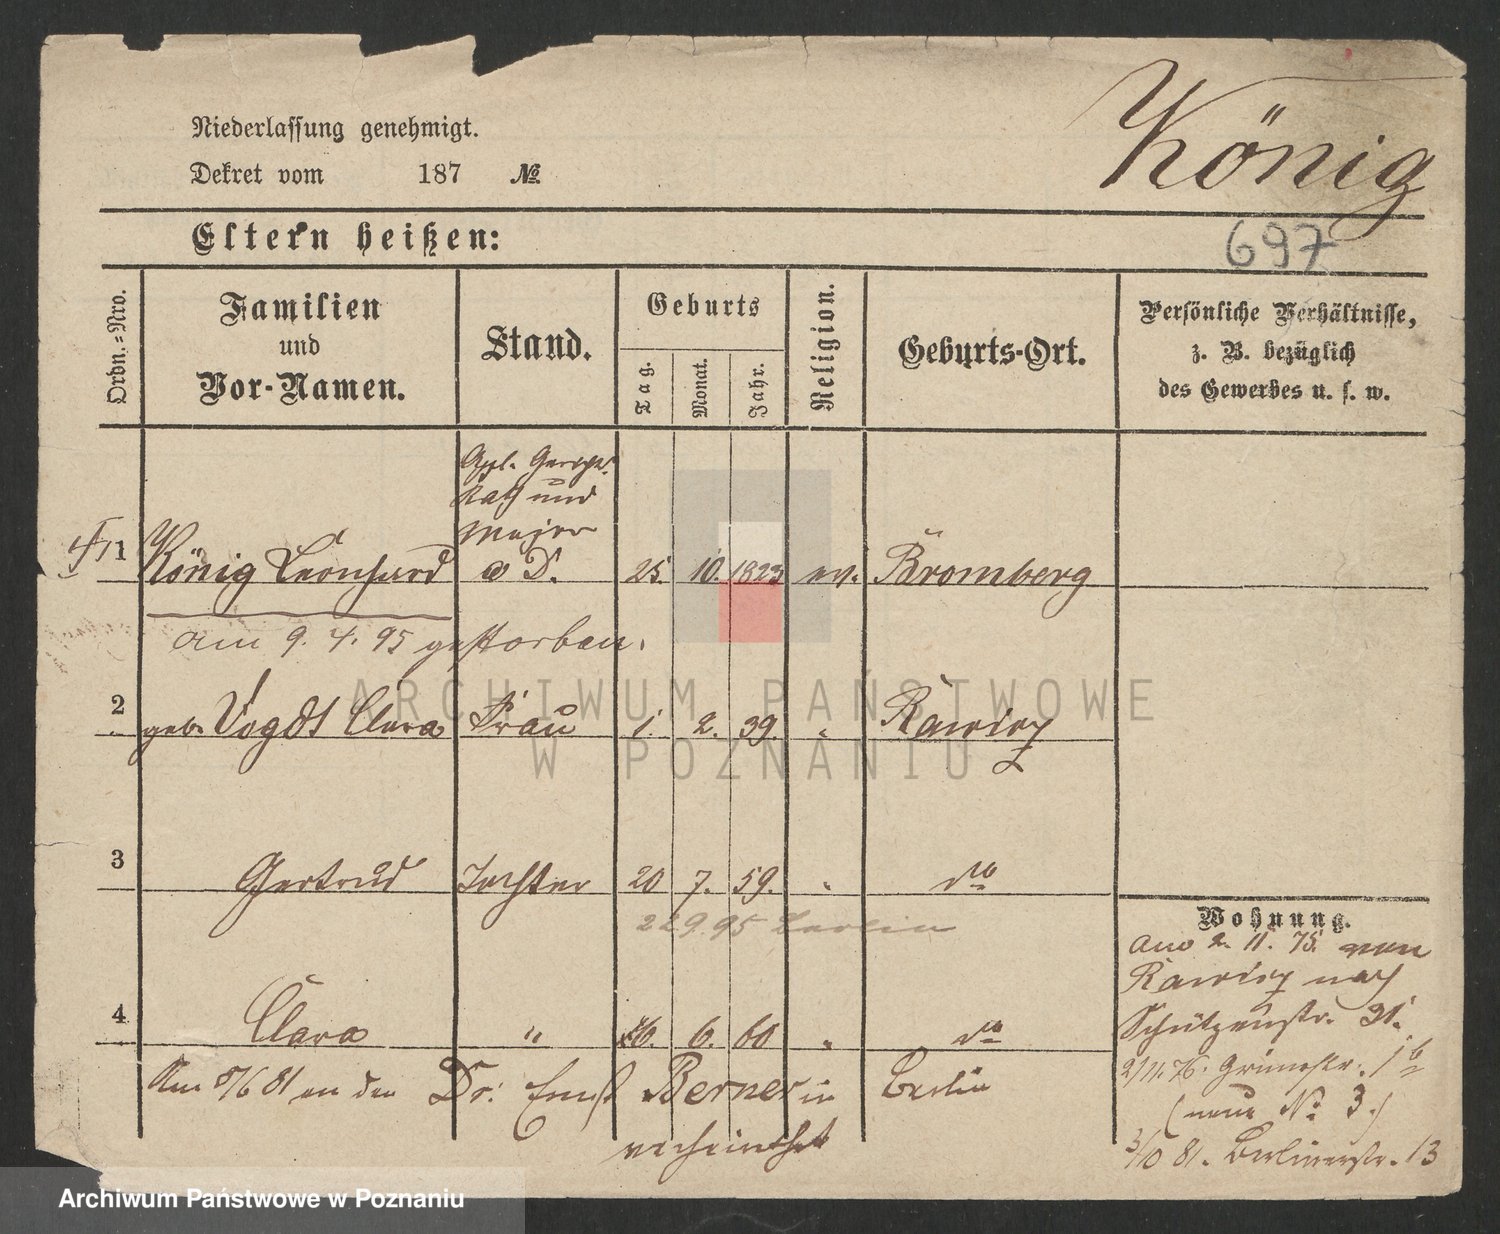 König
Niederlassung genehmigt.
Dekret vom 187 №
Eltern heißen:
697
Ordn.-Nro.
Familien
und
Vor-Namen.
Stand.
Geburts
Tag.
Monat.
Jahr.
Religion.
Geburts-Ort.
Persönliche Verhältnisse,
z. B. bezüglich
des Gewerbes u. s. w.
Appl. Gerichts
Rath und
Major
1 König Leonhard a D. 25. 10. 1823 ev. Bromberg
am 9. 4. 95 gestorben.
2 geb. Vogdt Clara Frau 1. 2. 39. " Rawicz
3 Gertrud Tochter 20 7. 59. " do
22 9. 95 Berlin
4 Clara " 6. 60 " do
Am 5/6 81 an den Dr. Ernst Berner in Berlin
verheirathet
Wohnung.
am 2. 11. 75. von
Rawicz nach
Schützenstr. 31.
2/11. 76. Grünestr. 1 b
(neue No 3.)
3/10 81. Berlinerstr. 13
ARCHIWUM PAŃSTWOWE
W POZNANIU
Archiwum Państwowe w Poznaniu